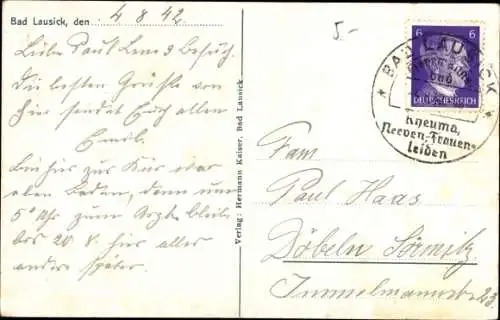 Bad Lausick, den 4 8 42
Liebe Paul Lena & Besuch.
Die besten Grüße von
hier sendet Euch allen
Emil.
Bin hier zur Kur
oben Baden, dann um
5 Uhr zum Arzt bleibe
bis 20 8. hier alles
andere später.
Verlag: Hermann Kaiser, Bad Lausick
5-
6 6
DEUTSCHES REICH
* BAD LAUSICK *
Rheuma,
Nerven-, Frauen-
leiden
Fam
Paul Haas
Döbeln Sörmitz
Immelmannstr 23.